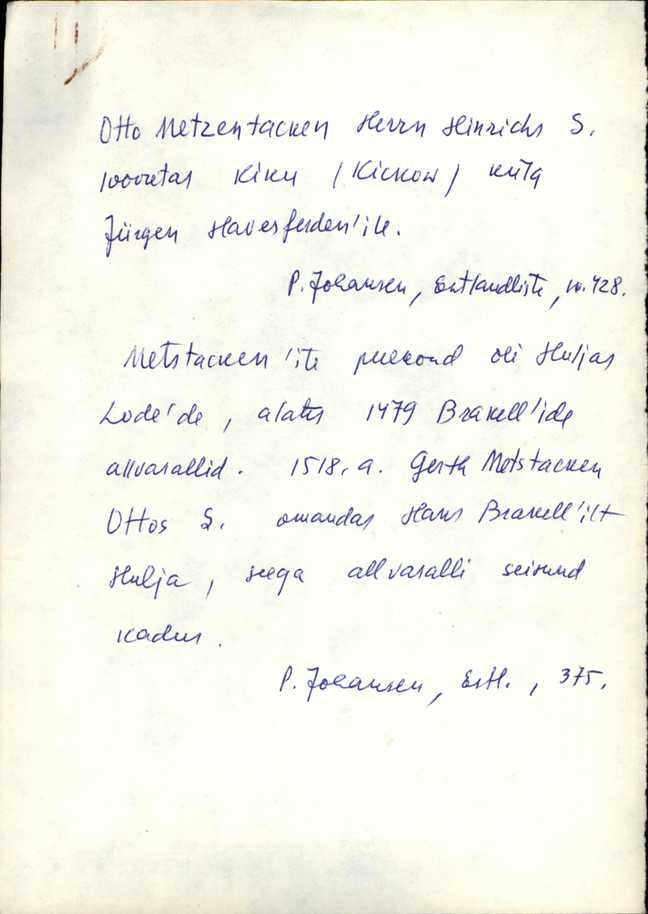 Otto Metzentacken Herrn Hinrichs S.
loovutas Kiku (Kickow) küla
Jürgen Havesforden'ile.
P. Johansen, Estlandliste, lk. 428.
Metstacken'ite perekond oli Huljas
Lode'de, alates 1479 Brakell'ide
allvasallid. 1518. a. Gerth Metstacken
Ottos S. omandas Hans Brakell'ilt
Hulja, seega allvasalli seisund
kadus.
P. Johansen, Estl., 375.